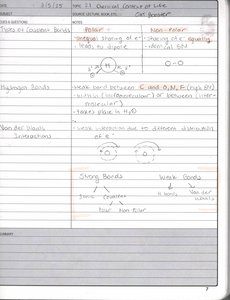 DATE 9/5/25 TOPIC 2.1 Chemical Context of Life
SUBJECT SOURCE: LECTURE, BOOK, ETC.
QUESTIONS NOTES
Types of Covalent Bonds Polar Non-Polar
- unequal sharing of e⁻ - sharing of e⁻ equally
- leads to dipole - identical EN
H O-O
Hydrogen Bonds - weak bond between H and O, N, F (high EN)
- within (intramolecular) or between (intermolecular)
- takes place in H₂O
Van der Waals - weak interaction due to different distribution
Interactions of e⁻
Strong Bonds Weak Bonds
Ionic Covalent H bonds Van der Waals
Polar Non Polar
SUMMARY
7